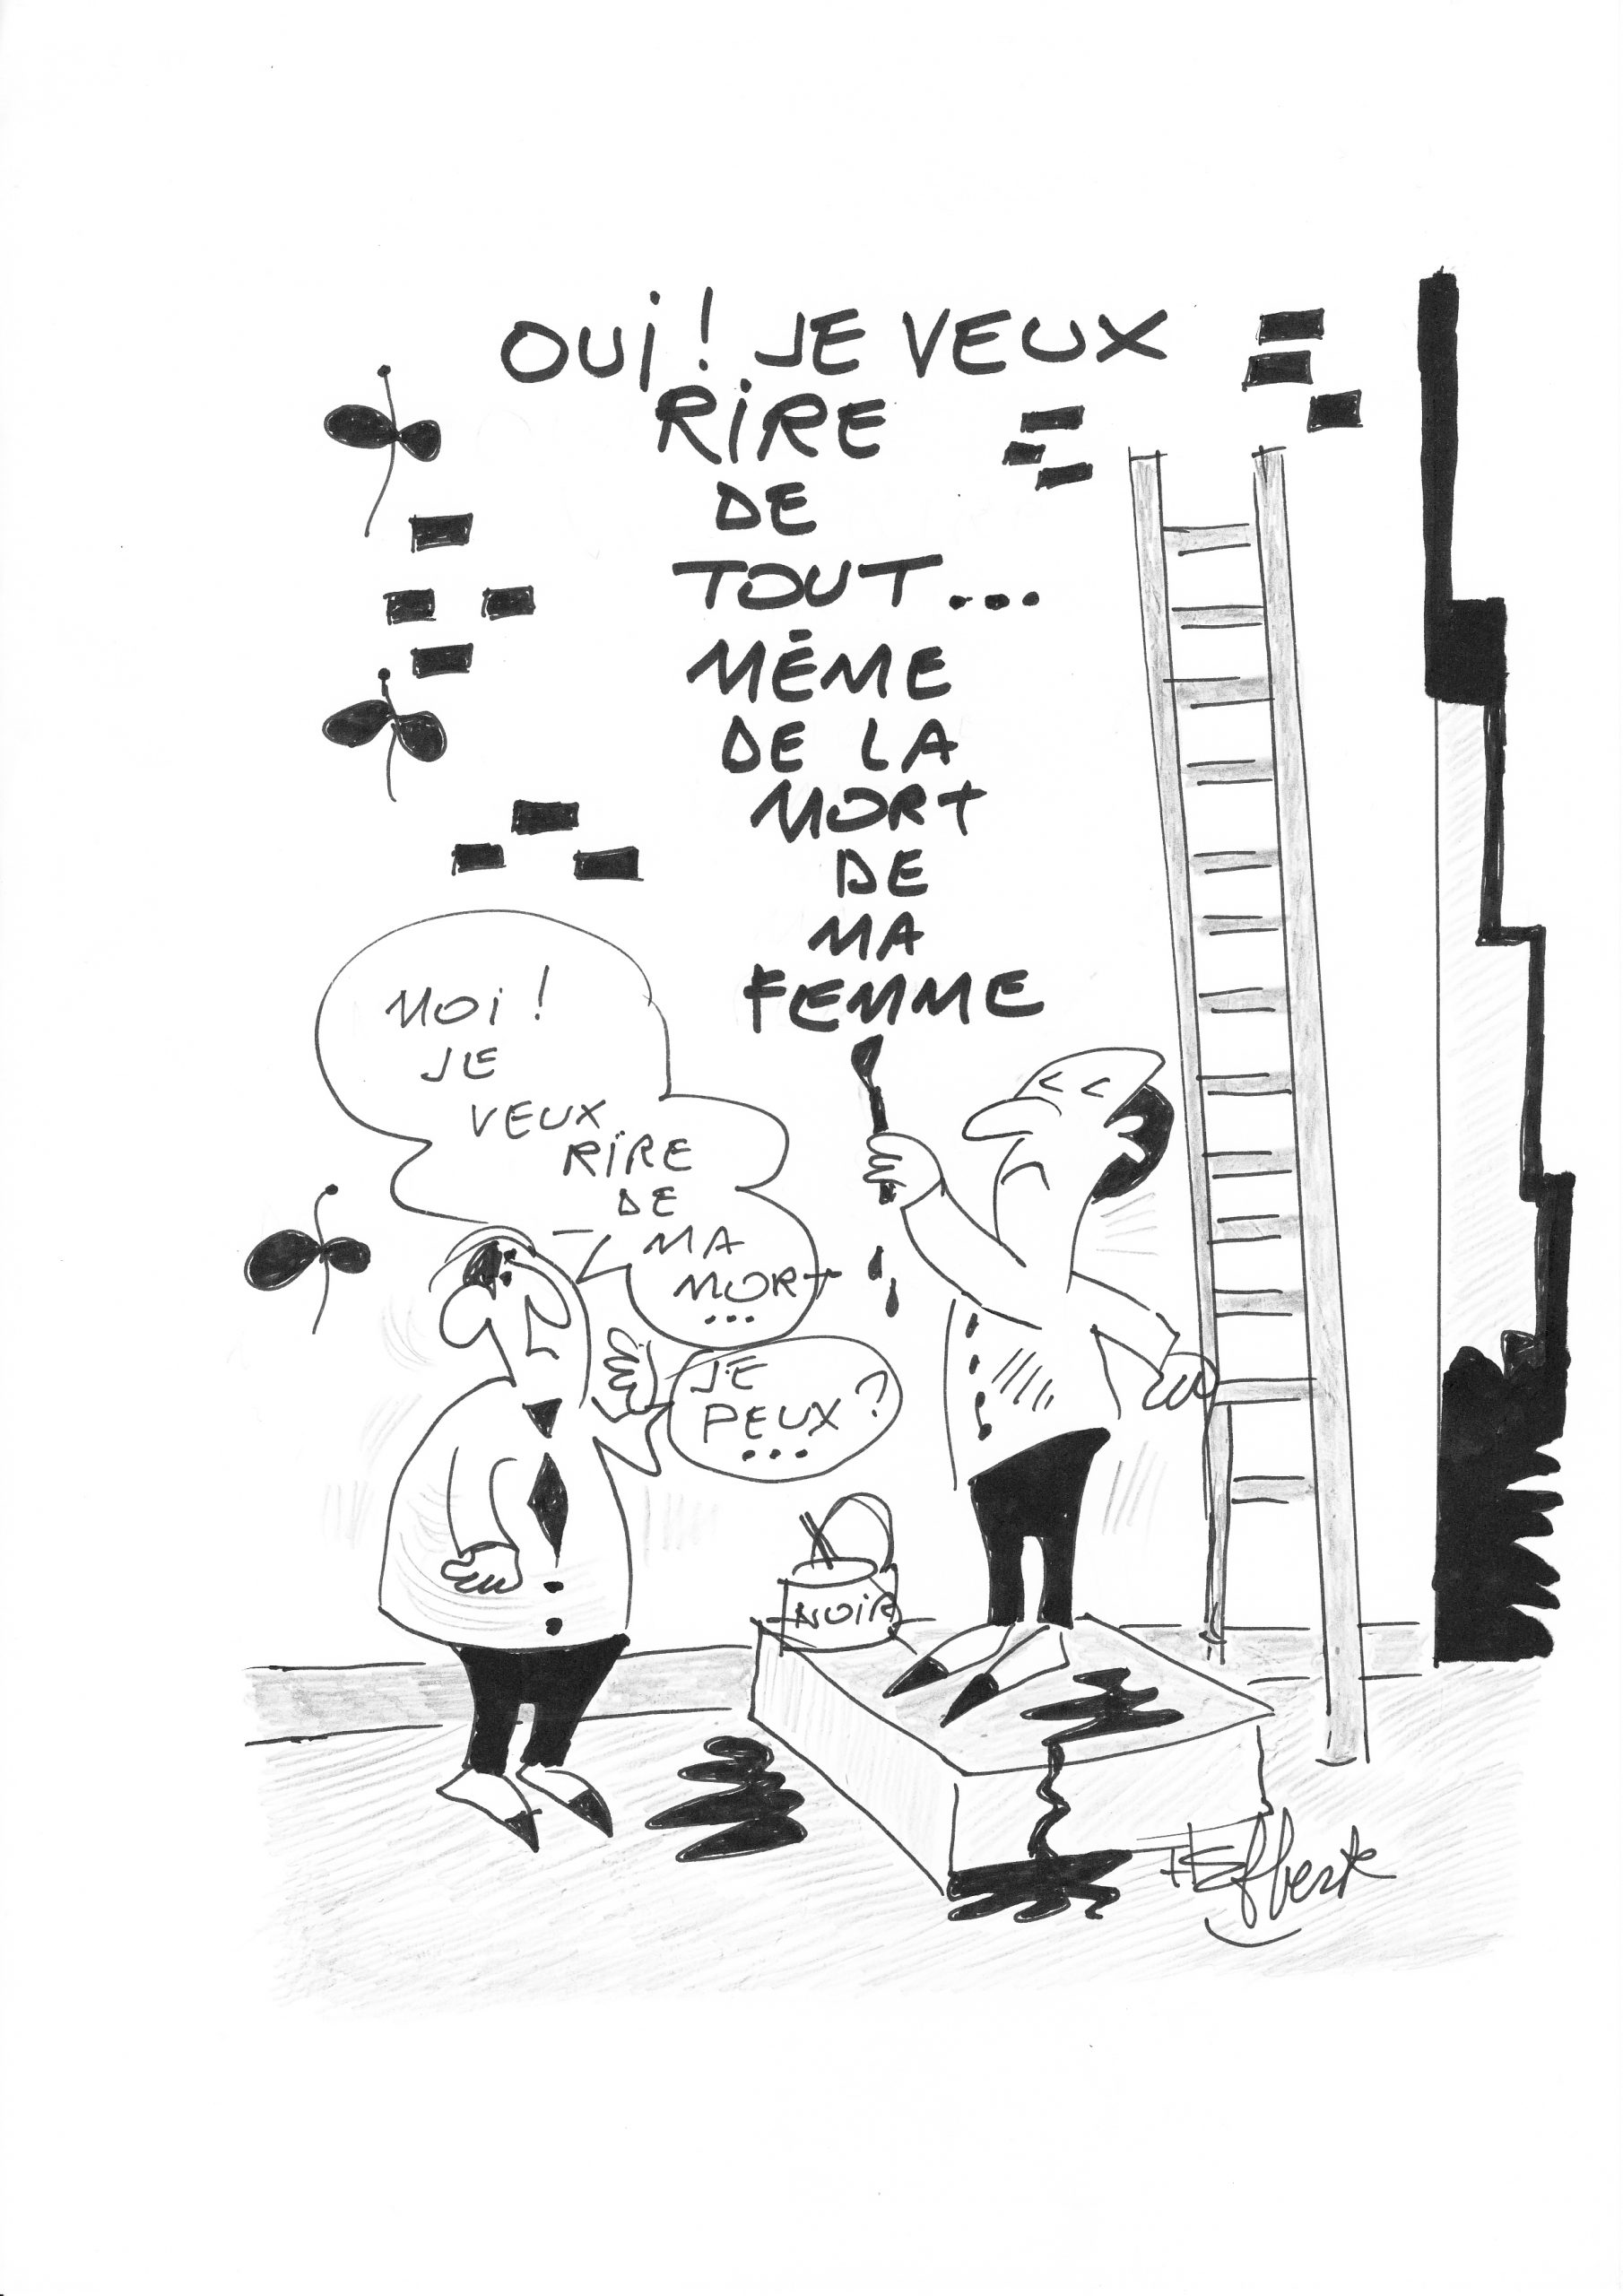 OUI ! JE VEUX
RIRE
DE
TOUT...
MÊME
DE LA
MORT
DE
MA
FEMME
MOI !
JE
VEUX
RIRE
DE
MA
MORT
...
JE
PEUX ?
...
NOIR